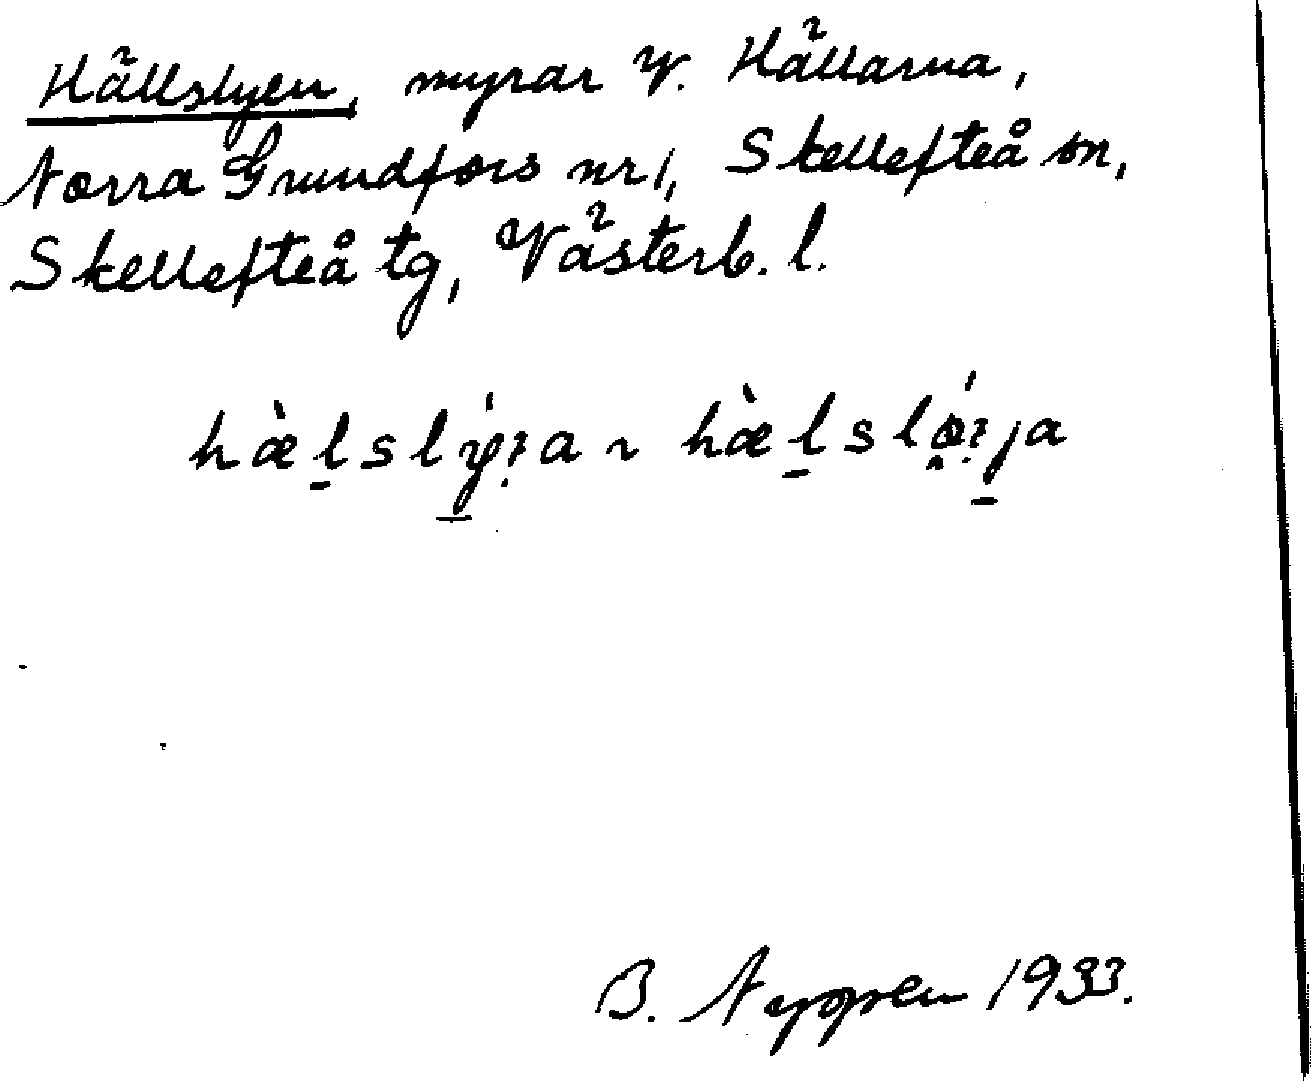 Hällslyen, myrar V. Hällarna,
Norra Grundfors nr 1, Skellefteå sn,
Skellefteå tg, Västerb. l.
hæ̀l̠slý̠ꝛ̣a ~ hæ̀l̠slǿꝛ̣j̠a
B. Nyppen 1933.